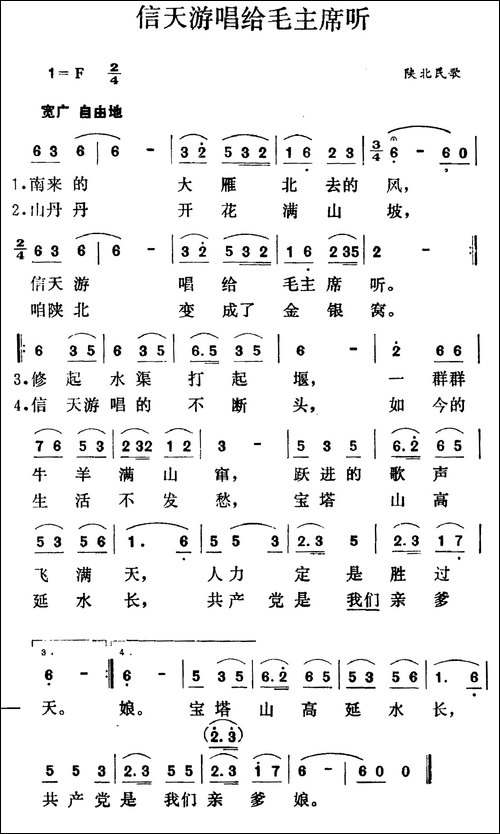 信天游唱给毛主席听
1=F 2/4 陕北民歌
宽广 自由地
6 3 6 | 6 - | 3 2 5 3 2 | 1 6 2 3 | 3/4 6 - 6 0 |
1.南来的 大雁 北去的风,
2.山丹丹 开花 满山坡,
2/4 6 3 6 | 6 - | 3 2 5 3 2 | 1 6 2 3 5 | 2 - :|
信天游 唱给 毛主席听。
咱陕北 变成了 金银窝。
|: 6 3 5 | 6 3 5 | 6.5 3 5 | 6 - | 2 6 6 |
3.修起水渠打起堰, 一群群
4.信天游唱的不断头, 如今的
7 6 5 3 | 2 3 2 1 2 | 3 - | 5 3 5 | 6.2 6 5 |
牛羊满山窜, 跃进的歌声
生活不发愁, 宝塔山高
5 3 5 6 | 1. 6 | 5 5 3 | 2.3 5 | 2.3 1 7 |
飞满天, 人力定是胜过
延水长, 共产党是我们亲爹
3. 4.
6 - :| 6 - | 5 3 5 | 6.2 6 5 | 5 3 5 6 | 1. 6 |
天。 娘。 宝塔山高延水长,
(2.3)
5 5 3 | 2.3 5 5 | 2.3 1 7 | 6 - | 6 0 0 ‖
共产党是我们亲爹娘。